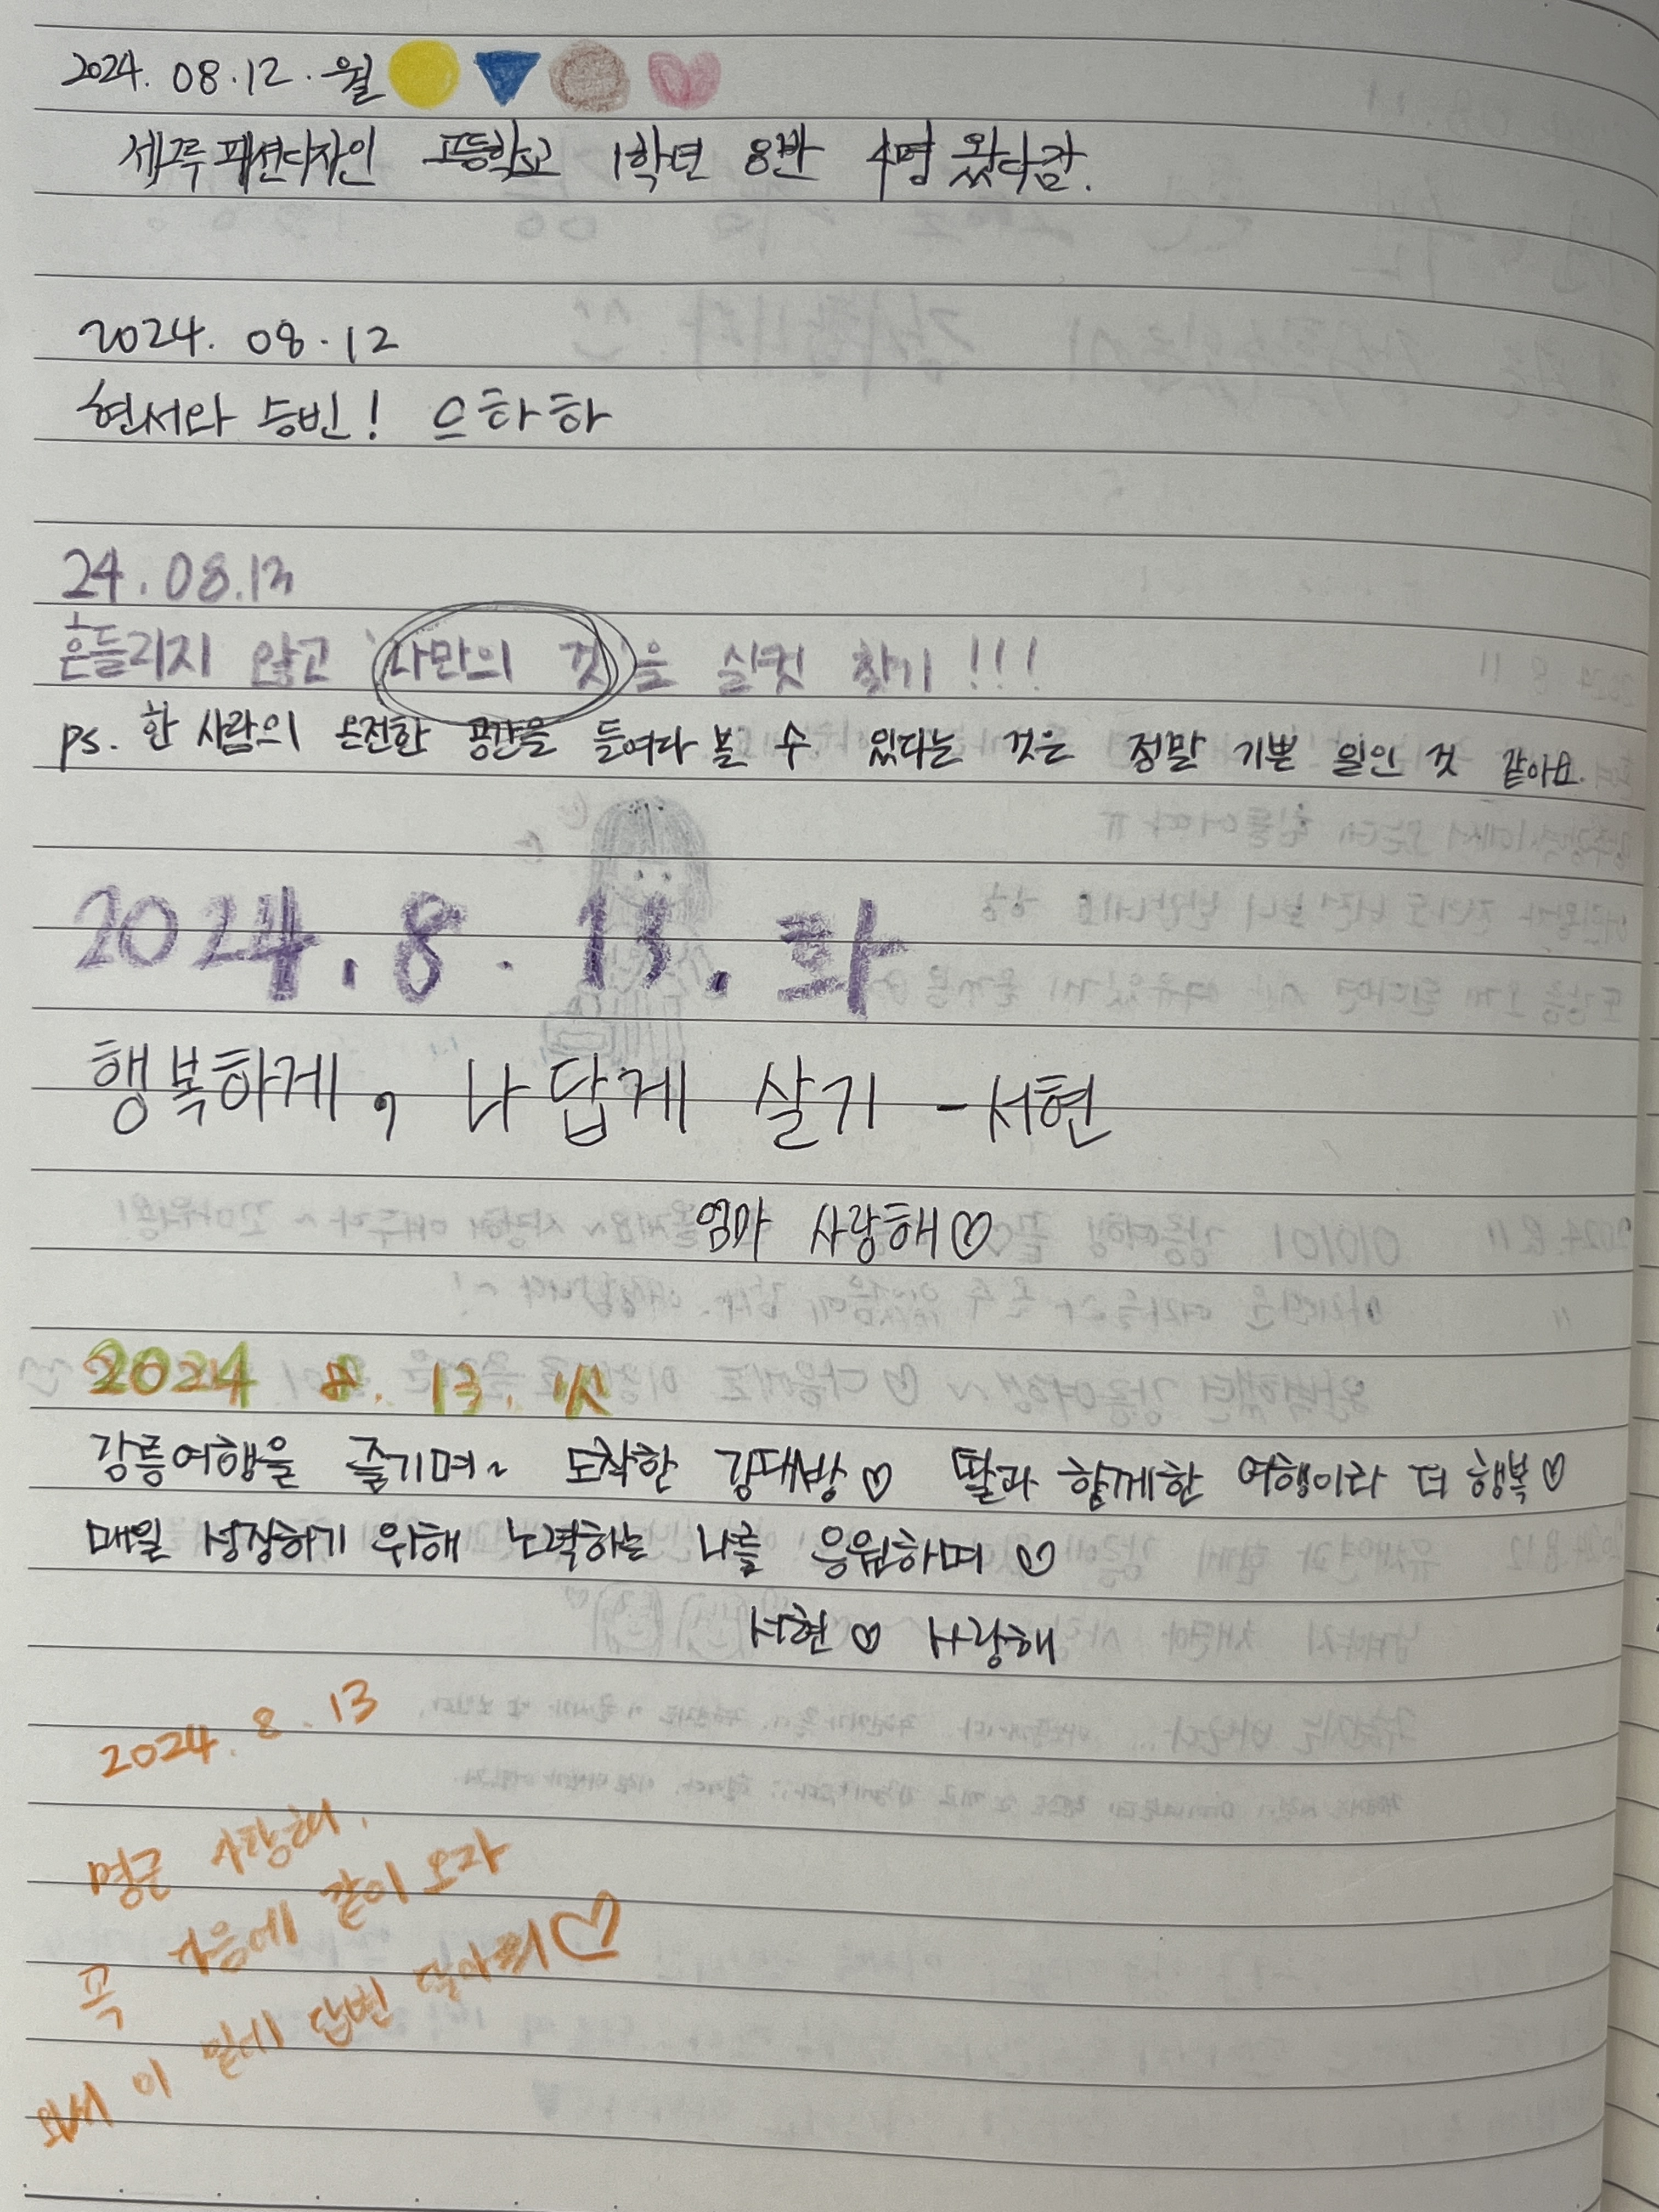 2024. 08. 12. 월
세그루패션디자인 고등학교 1학년 8반 4명 왔다감.
2024. 08. 12
현서와 승빈! 으하하
24. 08. 13
흔들리지 않고 '나만의 것'을 실컷 찾기!!!
ps. 한 사람의 온전한 공간을 들여다 볼 수 있다는 것은 정말 기쁜 일인 것 같아요.
2024. 8. 13. 화
행복하게, 나답게 살기 - 서현
엄마 사랑해♡
2024 8. 13. 火
강릉여행을 즐기며~ 도착한 강대방♡ 딸과 함께한 여행이라 더 행복♡
매일 성장하기 위해 노력하는 나를 응원하며♡
서현♡ 사랑해
2024. 8. 13
명근 사랑해.
꼭 다음에 같이 오자
와서 이 밑에 답변 달아줘♡